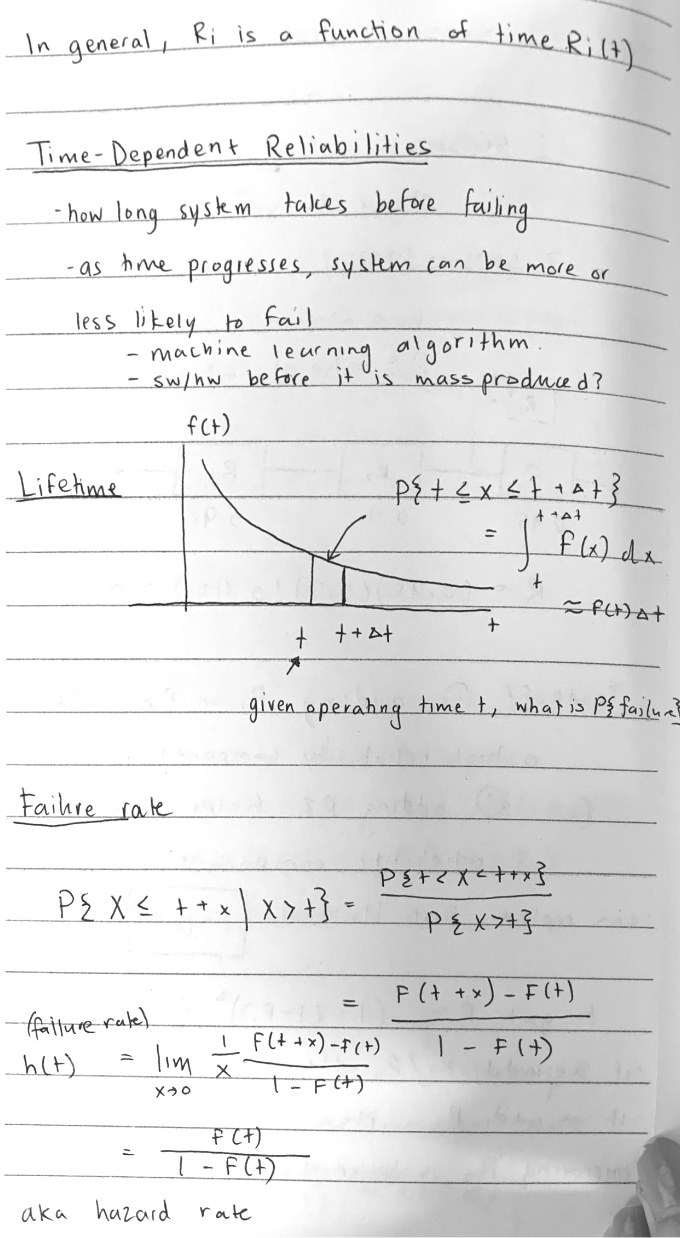 In general, Ri is a function of time Ri(t)
Time-Dependent Reliabilities
-how long system takes before failing
-as time progresses, system can be more or
less likely to fail
- machine learning algorithm.
- sw/hw before it is mass produced?
f(t)
Lifetime
P{t ≤ x ≤ t + Δt}
= ∫ₜᵗ⁺ᐞᵗ f(x) dx
≈ f(t)Δt
t t+Δt t
given operating time t, what is P{failure}
Failure rate
P{X ≤ t+x | X>t} = P{t<X<t+x} / P{X>t}
= F(t+x) - F(t) / 1 - F(t)
(failure rate)
h(t) = lim x→0 1/x F(t+x)-F(t) / 1 - F(t)
= f(t) / 1 - F(t)
aka hazard rate